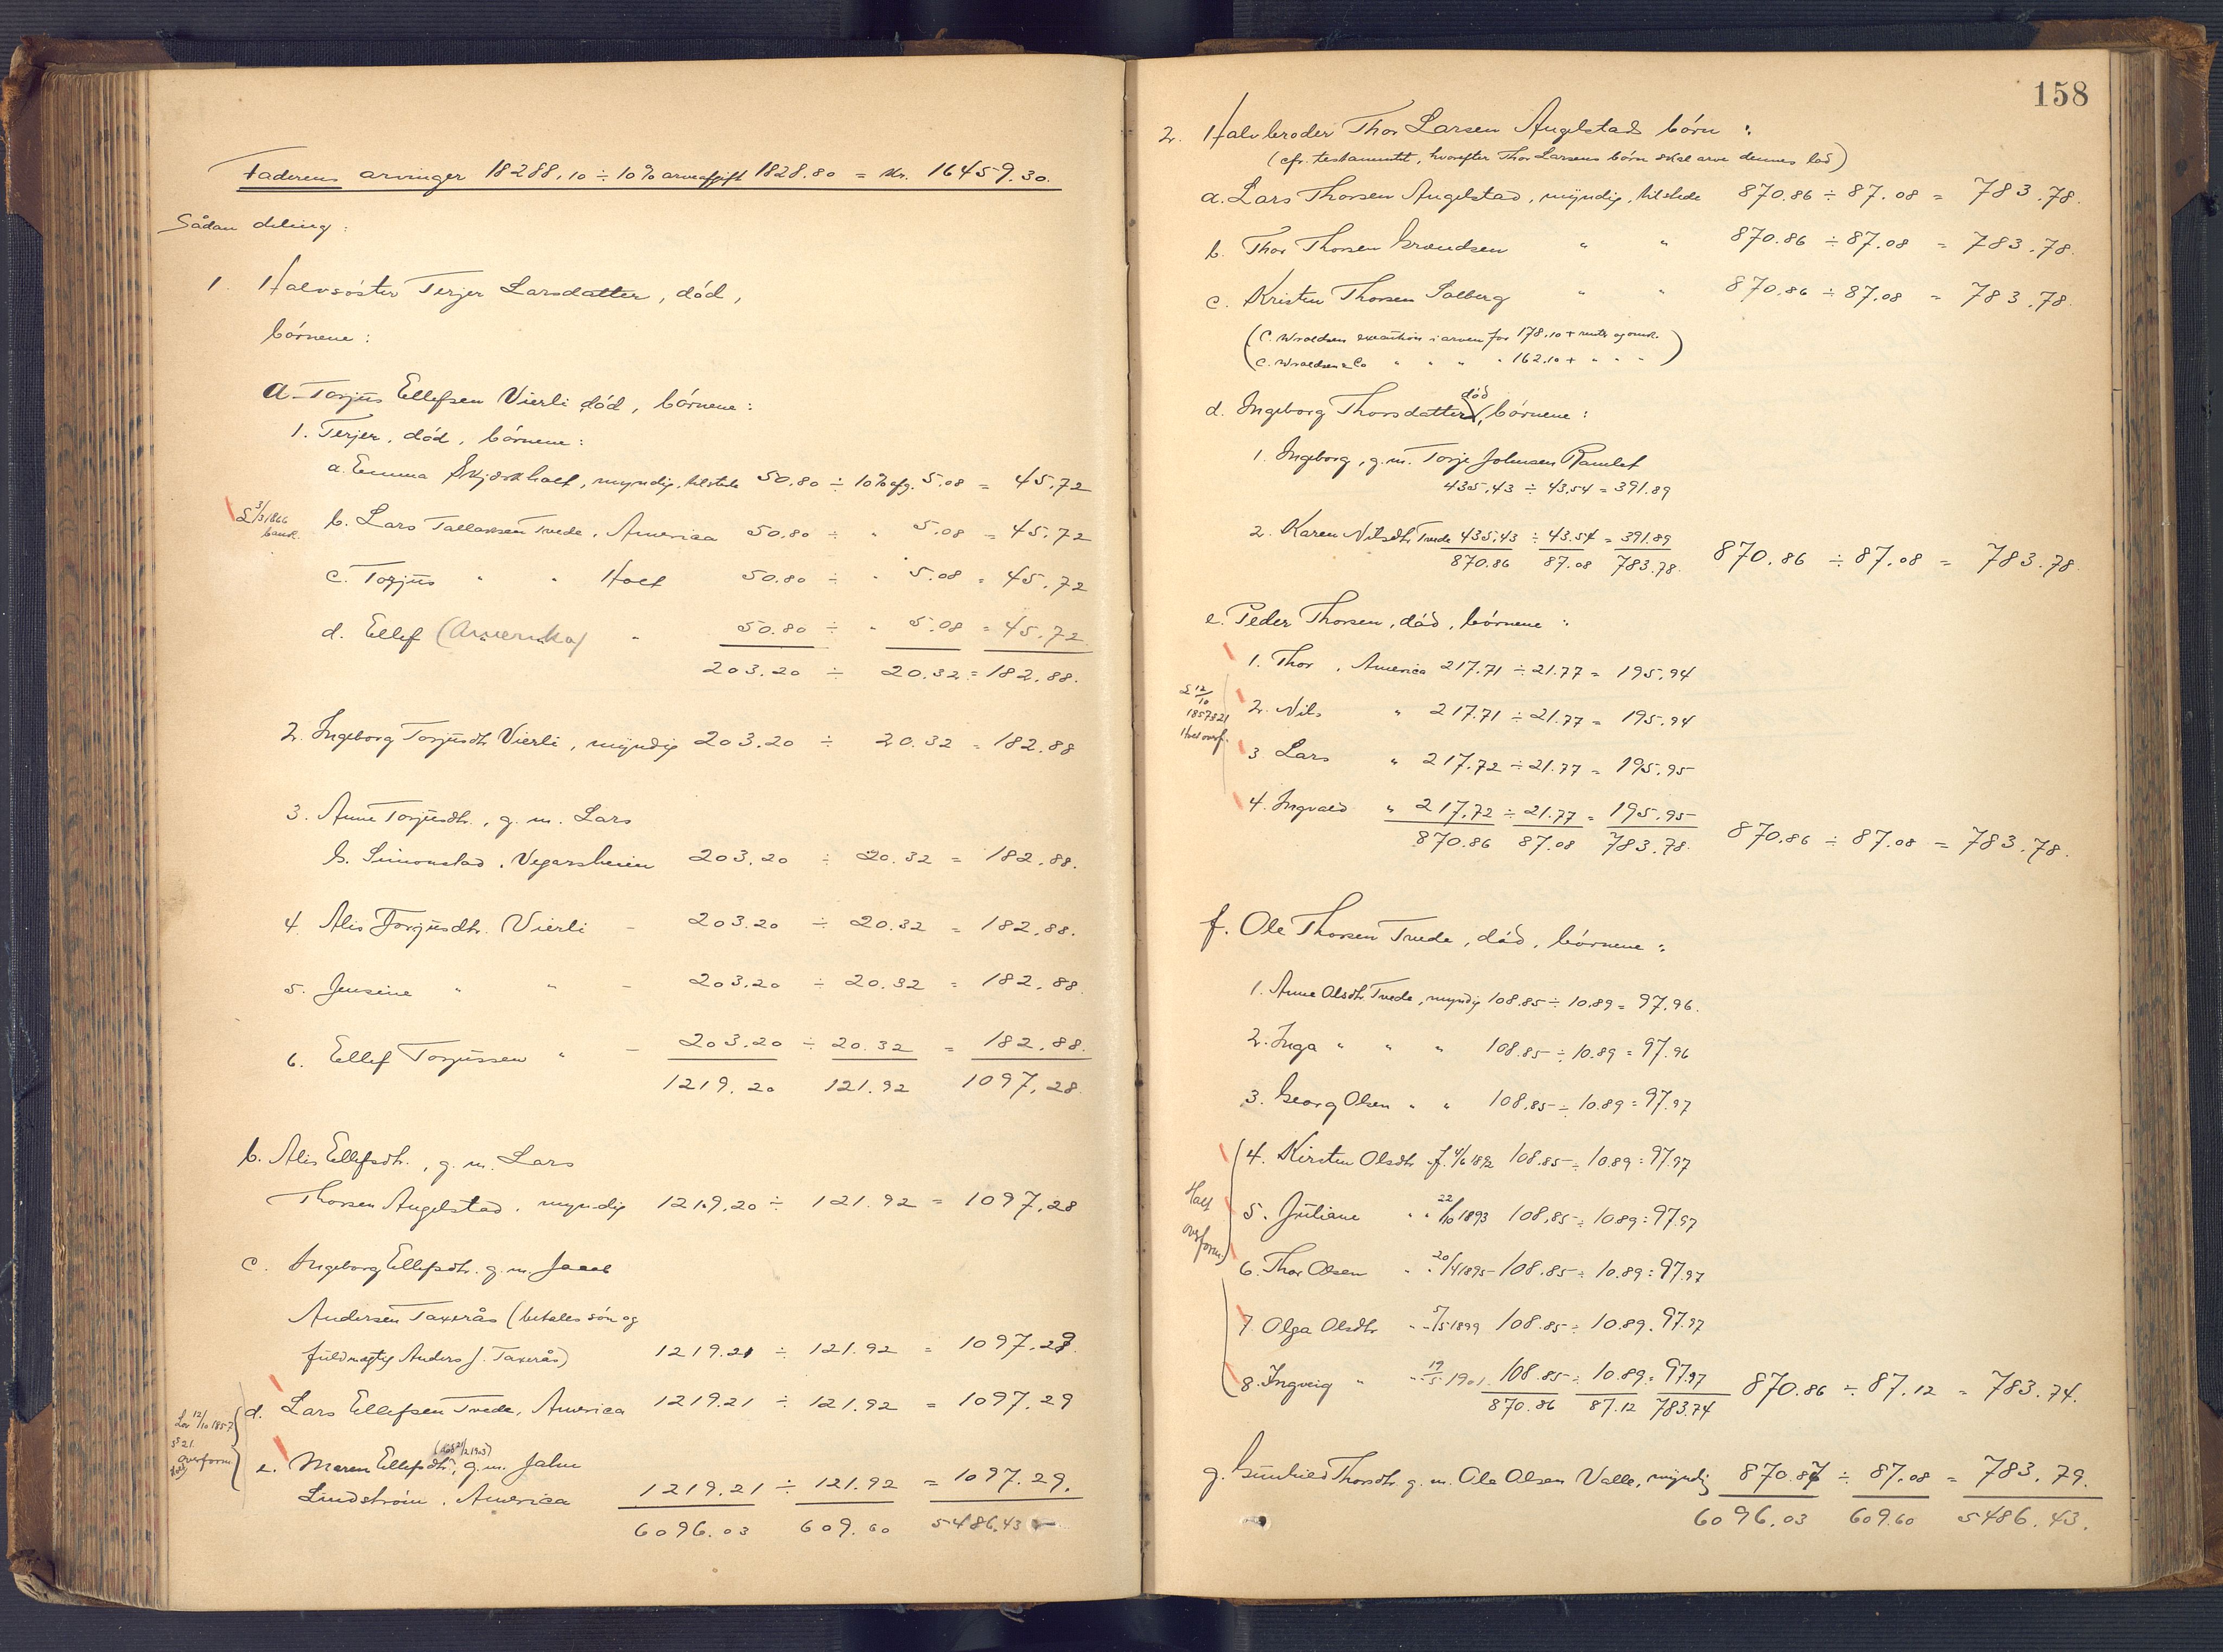 Faderens arvinger 18288,10 ÷ 10% arveafgift 1828.80 = kr. 16459.30.
Sådan deling:
1. Halvsöster Terjer Larsdatter, död,
börnene:
a. Torjus Ellefsen Vierli död, börnene:
1. Terjer, död, börnene:
a. Emma Skjærkholt, myndig, tilstede 50.80 ÷ 10% afg. 5.08 = 45.72
b. Lars Tallaksen Tvede, America 50.80 ÷ " 5.08 = 45.72
L 3/3 1866
bank.
c. Torjus " " Holt 50.80 ÷ " 5.08 = 45.72
d. Ellef (Amerika) " 50.80 ÷ " 5.08 = 45.72
203.20 ÷ 20.32 = 182.88.
2. Ingeborg Torjusdtr Vierli, myndig 203.20 ÷ 20.32 = 182.88
3. Anne Torjusdtr., g. m. Lars
Simonstad, Vegarsheien 203.20 ÷ 20.32 = 182.88.
4. Alis Torjusdtr. Vierli - 203.20 ÷ 20.32 = 182.88.
5. Jensine " " - 203.20 ÷ 20.32 = 182.88.
6. Ellef Torjussen " - 203.20 ÷ 20.32 = 182.88.
1219.20 121.92 1097.28.
b. Alis Ellefsdtr., g. m. Lars
Thorsen Angelstad, myndig 1219.20 ÷ 121.92 = 1097.28
c. Ingeborg Ellefsdtr. g. m. Jacob
Andersen Taxerås (betales sön og
fuldmægtig Anders J. Taxerås) 1219.21 ÷ 121.92 = 1097.29
d. Lars Ellefsen Tvede, America 1219.21 ÷ 121.92 = 1097.29
Lov 12/10 1857
§ 21.
overform.
Holt
(död 21/2 1903)
e. Maren Ellefsdtr, g. m. John
Lindström, America 1219.21 ÷ 121.92 = 1097.29.
6096.03 609.60 5486.43
158
2. Halvbroder Thor Larsen Angelstads börn:
(cfr. testamentet, hvorefter Thor Larsens börn skal arve dennes lod)
a. Lars Thorsen Angelstad, myndig, tilstede 870.86 ÷ 87.08 = 783.78.
b. Thor Thorsen Grændsen " " 870.86 ÷ 87.08 = 783.78.
c. Kristen Thorsen Solberg " " 870.86 ÷ 87.08 = 783.78.
(C. Woraldsen execution i arven for 178.10 + rente og omk.
C. Woraldsen & Co " " " " 162.10 + " " ")
död
d. Ingeborg Thorsdatter, börnene:
1. Ingeborg, g. m. Torje Johnsen Ramlet
435.43 ÷ 43.54 = 391.89
2. Karen Nilsdtr Tvede 435.43 ÷ 43.54 = 391.89
870.86 87.08 783.78. 870.86 ÷ 87.08 = 783.78.
e. Peder Thorsen, död, börnene:
1. Thor, America 217.71 ÷ 21.77 = 195.94
L 12/10
1857 § 21
Holt overf.
2. Nils " 217.71 ÷ 21.77 = 195.94
3. Lars " 217.72 ÷ 21.77 = 195.95
4. Ingvald " 217.72 ÷ 21.77 = 195.95
870.86 87.08 783.78. 870.86 ÷ 87.08 = 783.78.
f. Ole Thorsen Tvede, död, börnene:
1. Anne Olsdtr Tvede, myndig 108.85 ÷ 10.89 = 97.96.
2. Inga " " " 108.85 ÷ 10.89 = 97.96
3. Georg Olsen " " 108.85 ÷ 10.89 = 97.97
4. Kirsten Olsdtr f. 4/6 1892 108.85 ÷ 10.89 = 97.97
Holt
overform.
5. Juliane " " 22/10 1893 108.85 ÷ 10.89 = 97.97
6. Thor Olsen " " 20/4 1895 108.85 ÷ 10.89 = 97.97
7. Olga Olsdtr " " 5/5 1899 108.85 ÷ 10.89 = 97.97
8. Ingveig " " 19/5 1901. 108.85 ÷ 10.89 = 97.97
870.86 87.12 783.74 870.86 ÷ 87.12 = 783.74.
g. Gunhild Thorsdtr. g. m. Ole Olsen Valle, myndig 870.87 ÷ 87.08 = 783.79.
6096.03 609.60 5486.43.